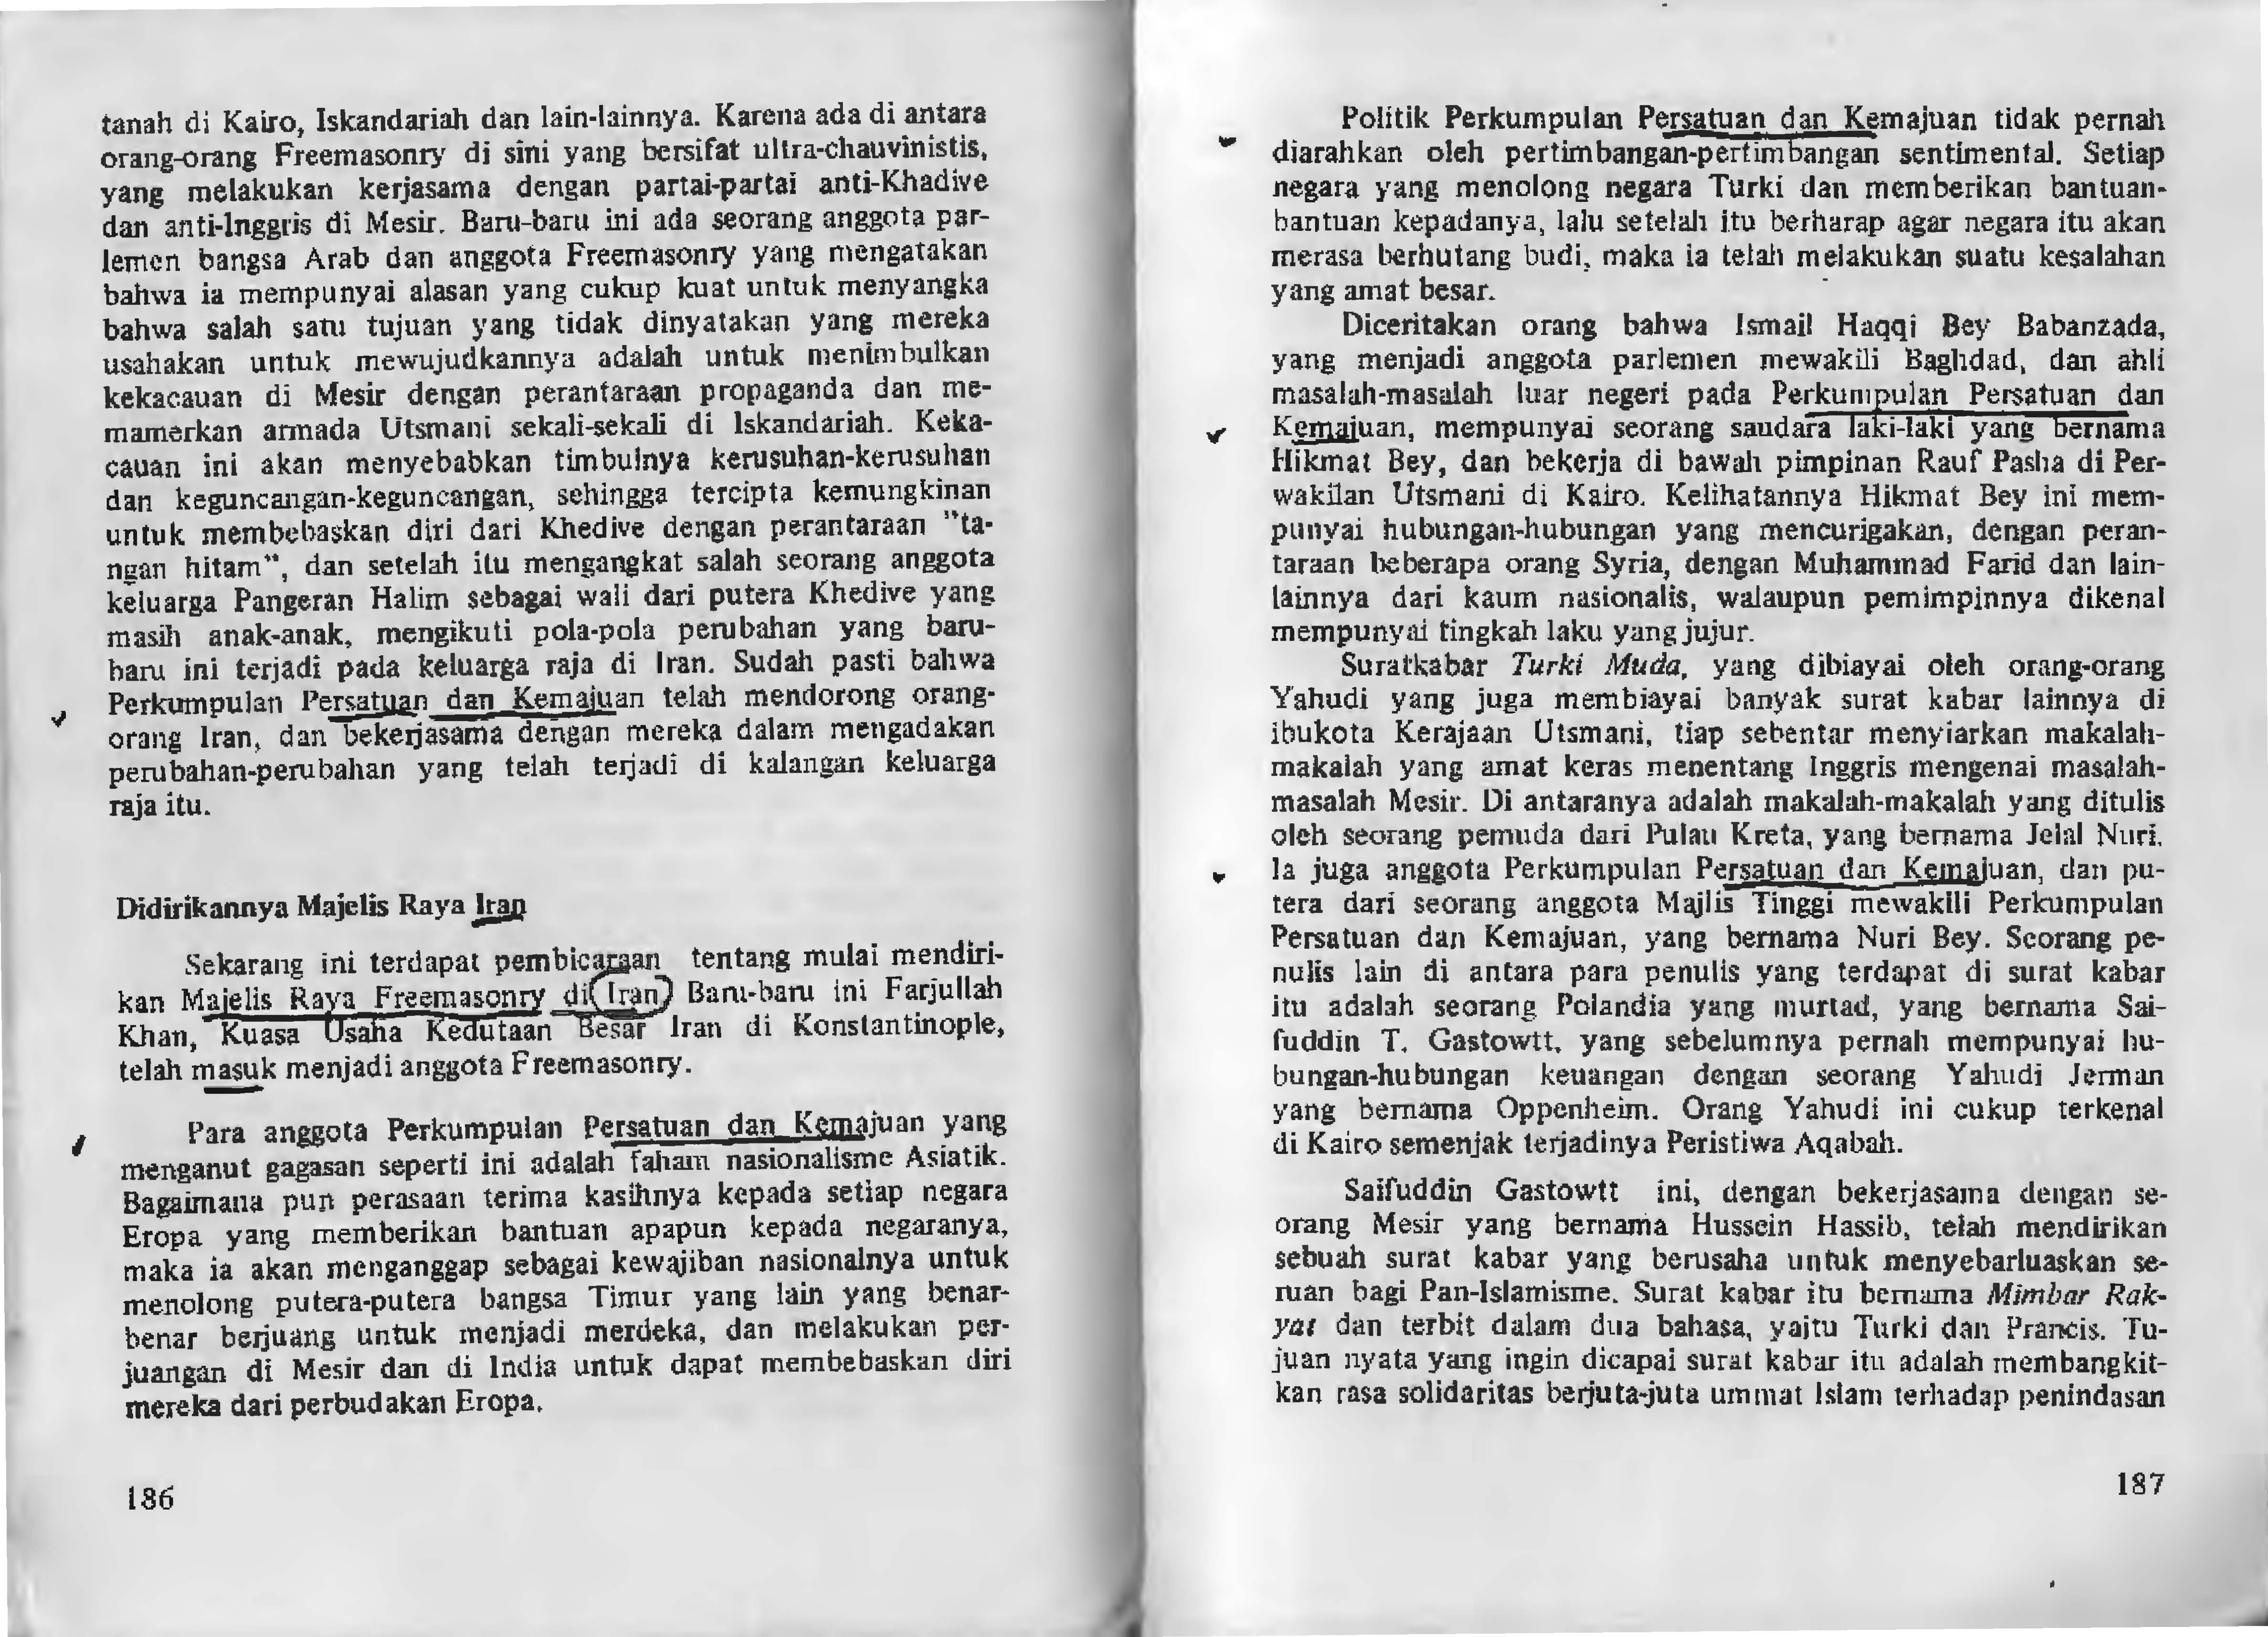 tanah di Kairo, Iskandariah dan lain-lainnya. Karena ada di antara
orang-orang Freemasonry di sini yang bersifat ultra-chauvinistis,
yang melakukan kerjasama dengan partai-partai anti-Khadive
dan anti-Inggris di Mesir. Baru-baru ini ada seorang anggota par-
lemen bangsa Arab dan anggota Freemasonry yang mengatakan
bahwa ia mempunyai alasan yang cukup kuat untuk menyangka
bahwa salah satu tujuan yang tidak dinyatakan yang mereka
usahakan untuk mewujudkannya adalah untuk menimbulkan
kekacauan di Mesir dengan perantaraan propaganda dan me-
mamerkan armada Utsmani sekali-sekali di Iskandariah. Keka-
cauan ini akan menyebabkan timbulnya kerusuhan-kerusuhan
dan keguncangan-keguncangan, sehingga tercipta kemungkinan
untuk membebaskan diri dari Khedive dengan perantaraan "ta-
ngan hitam", dan setelah itu mengangkat salah seorang anggota
keluarga Pangeran Halim sebagai wali dari putera Khedive yang
masih anak-anak, mengikuti pola-pola perubahan yang baru-
baru ini terjadi pada keluarga raja di Iran. Sudah pasti bahwa
Perkumpulan Persatuan dan Kemajuan telah mendorong orang-
orang Iran, dan bekerjasama dengan mereka dalam mengadakan
perubahan-perubahan yang telah terjadi di kalangan keluarga
raja itu.
Didirikannya Majelis Raya Iran
Sekarang ini terdapat pembicaraan tentang mulai mendiri-
kan Majelis Raya Freemasonry di Iran Baru-baru ini Farjullah
Khan, Kuasa Usaha Kedutaan Besar Iran di Konstantinople,
telah masuk menjadi anggota Freemasonry.
Para anggota Perkumpulan Persatuan dan Kemajuan yang
menganut gagasan seperti ini adalah faham nasionalisme Asiatik.
Bagaimana pun perasaan terima kasihnya kepada setiap negara
Eropa yang memberikan bantuan apapun kepada negaranya,
maka ia akan menganggap sebagai kewajiban nasionalnya untuk
menolong putera-putera bangsa Timur yang lain yang benar-
benar berjuang untuk menjadi merdeka, dan melakukan per-
juangan di Mesir dan di India untuk dapat membebaskan diri
mereka dari perbudakan Eropa.
186
Politik Perkumpulan Persatuan dan Kemajuan tidak pernah
diarahkan oleh pertimbangan-pertimbangan sentimental. Setiap
negara yang menolong negara Turki dan memberikan bantuan-
bantuan kepadanya, lalu setelah itu berharap agar negara itu akan
merasa berhutang budi, maka ia telah melakukan suatu kesalahan
yang amat besar.
Diceritakan orang bahwa Ismail Haqqi Bey Babanzada,
yang menjadi anggota parlemen mewakili Baghdad, dan ahli
masalah-masalah luar negeri pada Perkumpulan Persatuan dan
Kemajuan, mempunyai seorang saudara laki-laki yang bernama
Hikmat Bey, dan bekerja di bawah pimpinan Rauf Pasha di Per-
wakilan Utsmani di Kairo. Kelihatannya Hikmat Bey ini mem-
punyai hubungan-hubungan yang mencurigakan, dengan peran-
taraan beberapa orang Syria, dengan Muhammad Farid dan lain-
lainnya dari kaum nasionalis, walaupun pemimpinnya dikenal
mempunyai tingkah laku yang jujur.
Suratkabar Turki Muda, yang dibiayai oleh orang-orang
Yahudi yang juga membiayai banyak surat kabar lainnya di
ibukota Kerajaan Utsmani, tiap sebentar menyiarkan makalah-
makalah yang amat keras menentang Inggris mengenai masalah-
masalah Mesir. Di antaranya adalah makalah-makalah yang ditulis
oleh seorang pemuda dari Pulau Kreta, yang bernama Jelal Nuri.
Ia juga anggota Perkumpulan Persatuan dan Kemajuan, dan pu-
tera dari seorang anggota Majlis Tinggi mewakili Perkumpulan
Persatuan dan Kemajuan, yang bernama Nuri Bey. Seorang pe-
nulis lain di antara para penulis yang terdapat di surat kabar
itu adalah seorang Polandia yang murtad, yang bernama Sai-
fuddin T. Gastowtt, yang sebelumnya pernah mempunyai hu-
bungan-hubungan keuangan dengan seorang Yahudi Jerman
yang bernama Oppenheim. Orang Yahudi ini cukup terkenal
di Kairo semenjak terjadinya Peristiwa Aqabah.
Saifuddin Gastowtt ini, dengan bekerjasama dengan se-
orang Mesir yang bernama Hussein Hassib, telah mendirikan
sebuah surat kabar yang berusaha untuk menyebarluaskan se-
ruan bagi Pan-Islamisme. Surat kabar itu bernama Mimbar Rak-
yat dan terbit dalam dua bahasa, yaitu Turki dan Prancis. Tu-
juan nyata yang ingin dicapai surat kabar itu adalah membangkit-
kan rasa solidaritas berjuta-juta ummat Islam terhadap penindasan
187